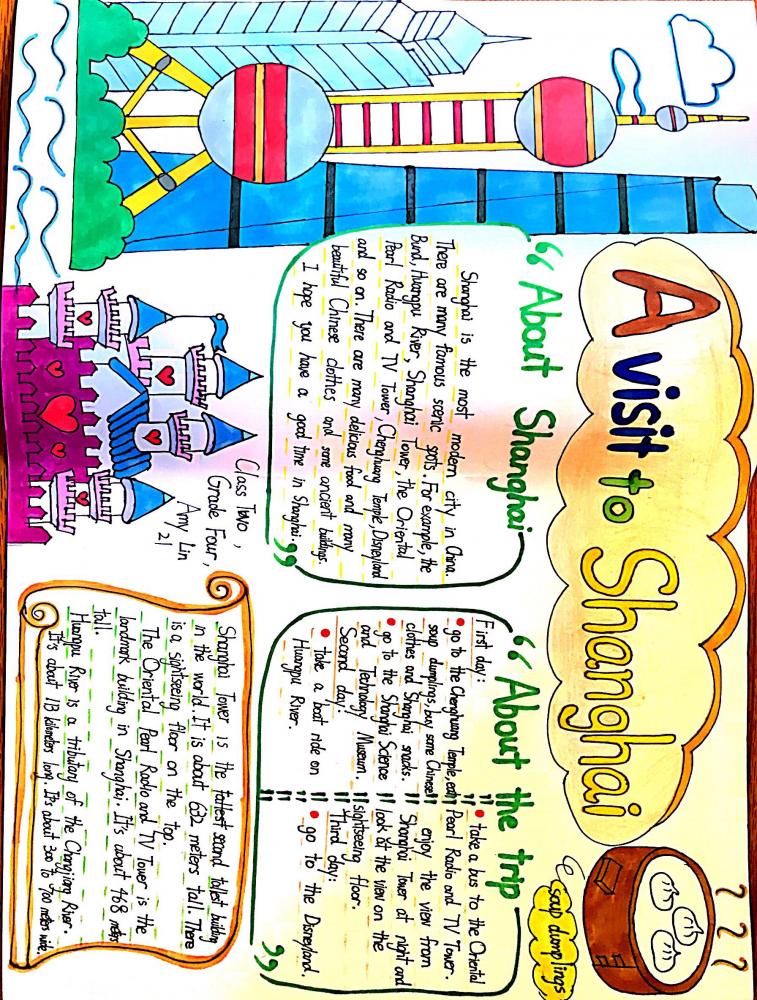 A visit to Shanghai
soup dumplings
"About Shanghai
Shanghai is the most modern city in China.
There are many famous scenic spots. For example, the
Bund, Huangpu River, Shanghai Tower, the Oriental
Pearl Radio and TV Tower, Chenghuang Temple, Disneyland
and so on. There are many delicious food and many
beautiful Chinese clothes and some ancient buildings.
I hope you have a good time in Shanghai."
"About the trip
First day:
• go to the Chenghuang Temple, eat
soup dumplings, buy some Chinese
clothes and Shanghai snacks.
• go to the Shanghai Science
and Technology Museum.
Second day:
• take a boat ride on
Huangpu River.
• take a bus to the Oriental
Pearl Radio and TV Tower.
enjoy the view from
Shanghai Tower at night and
look at the view on the
sightseeing floor.
Third day:
• go to the Disneyland.
"
Class Two,
Grade Four,
Amy Lin
21
Shanghai Tower is the tallest second tallest building
in the world. It is about 632 meters tall. There
is a sightseeing floor on the top.
The Oriental Pearl Radio and TV Tower is the
landmark building in Shanghai. It's about 468 meters
tall.
Huangpu River is a tributary of the Changjiang River.
It's about 113 kilometers long. It's about 300 to 700 meters wide.